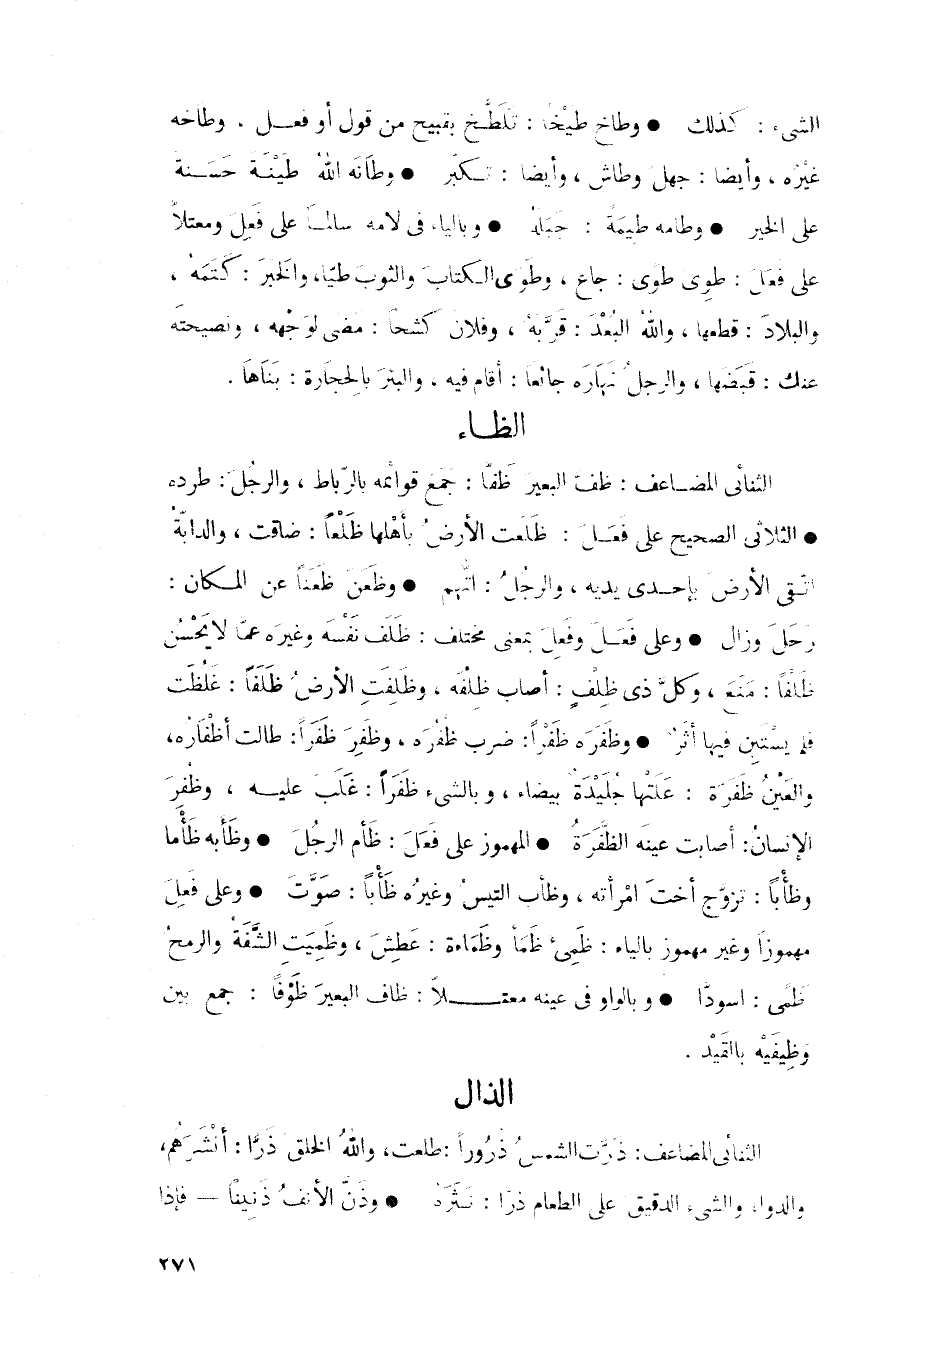 الشىء : كذلك ● وطاخ طيْخًا : تَلَطَّخ بقبيح من قول أو فعـل . وطاخه
غيْرُه ، وأيضا : جهل وطاش ، وأيضا : تـكبر ● وطانَه اللهُ طَيْنَـةً حَسَـنة
على الخير ● وطامه طيمَةً : جَبَله ● وبالياء فى لامه سالمـاً على فَعِلَ ومعتلاً
على فَعَلَ : طوِى طوًى : جاع ، وطَوَى الـكتابَ والثوبَ طيّا، والخبرَ : كَتَمَهُ ،
والبلادَ : قطعها ، واللهُ البُعْدَ : قَرَّبَهُ ، وفلان كَشحاً : مَضَى لوَجْهه ، ونصيحتَه
عنك : قَبَضَها ، والرجلُ نَهَارَه جائعا : أقام فيه ، والبئرَ بالحجارة : بَنَاهَا .
الظـاء
الثنائى المضـاعف : ظفَّ البعيرَ ظَفًّا : جَمَعَ قوائمه بالرّباط ، والرجُلَ : طرده
● الثلاثى الصحيح على فَعَـلَ : ظَلَعت الأرضُ بأهْلها ظَلْعاً : ضاقت ، والدابّةُ
اتـقى الأرضَ بإحـدى يديه ، والرجُلُ : اتُّهِم ● وظَعَنَ ظَعَنَاً عن المـكان :
رَحَلَ وزال ● وعلى فَعَـلَ وفَعِلَ بمعنى مختلف : ظَلَف نفْسَه وغيرَه عمّا لا يَحْسُن
ظَلْفاً : مَنَعَ ، وكلَّ ذى ظلْفٍ : أصاب ظلْفَه ، وظَلِفَتِ الأرضُ ظَلَفَاً : غَلُظَت
فلم يسْتَبِن فيها أثَرٌ ● وظَفَرَه ظَفْراً: ضرب ظُفْرَه ، وظَفِرَ ظَفَراً: طالت أظْفَارُه،
والعَيْنُ ظَفَرَة : عَلَتْها جُلَيْدَةٌ بيضاء ، وبالشىء ظَفَراً : غَلَبَ عليـه ، وظُفِرَ
الإنسانُ: أصابت عينَه الظَّفَرَةُ ● المهموز على فَعَلَ : ظَأم الرجُلَ ● وظَأَبه ظَأْما
وظأْباً : تزوَّج أختَ امْرأته ، وظأب التيسُ وغيرُه ظَأْباً : صَوَّتَ ● وعلى فَعِلَ
مهموزاً وغير مهموز بالياء : ظَمِئَ ظَمَأً وظَمَاءة : عَطِشَ ، وظَمِيَت الشَّفَةُ والرمحُ
ظَمًى : اسودّا ● وبالواو فى عينه معتـــلاًّ : ظاف البعيرَ ظَوْفًا : جمع بين
وَظِيفَيْه بالقَيْد .
الذال
الثنائى المضاعف: ذَرَّت الشمسُ ذُرُوراً :طلعت، واللهُ الخلقَ ذَرًّا : أنْشَرَهُم،
والدواء والشىء الدقيقَ على الطعام ذرًا : نَـثَرَهُ ● وذَنَّ الأنفُ ذَنِينًا – فإذا
٢٧١